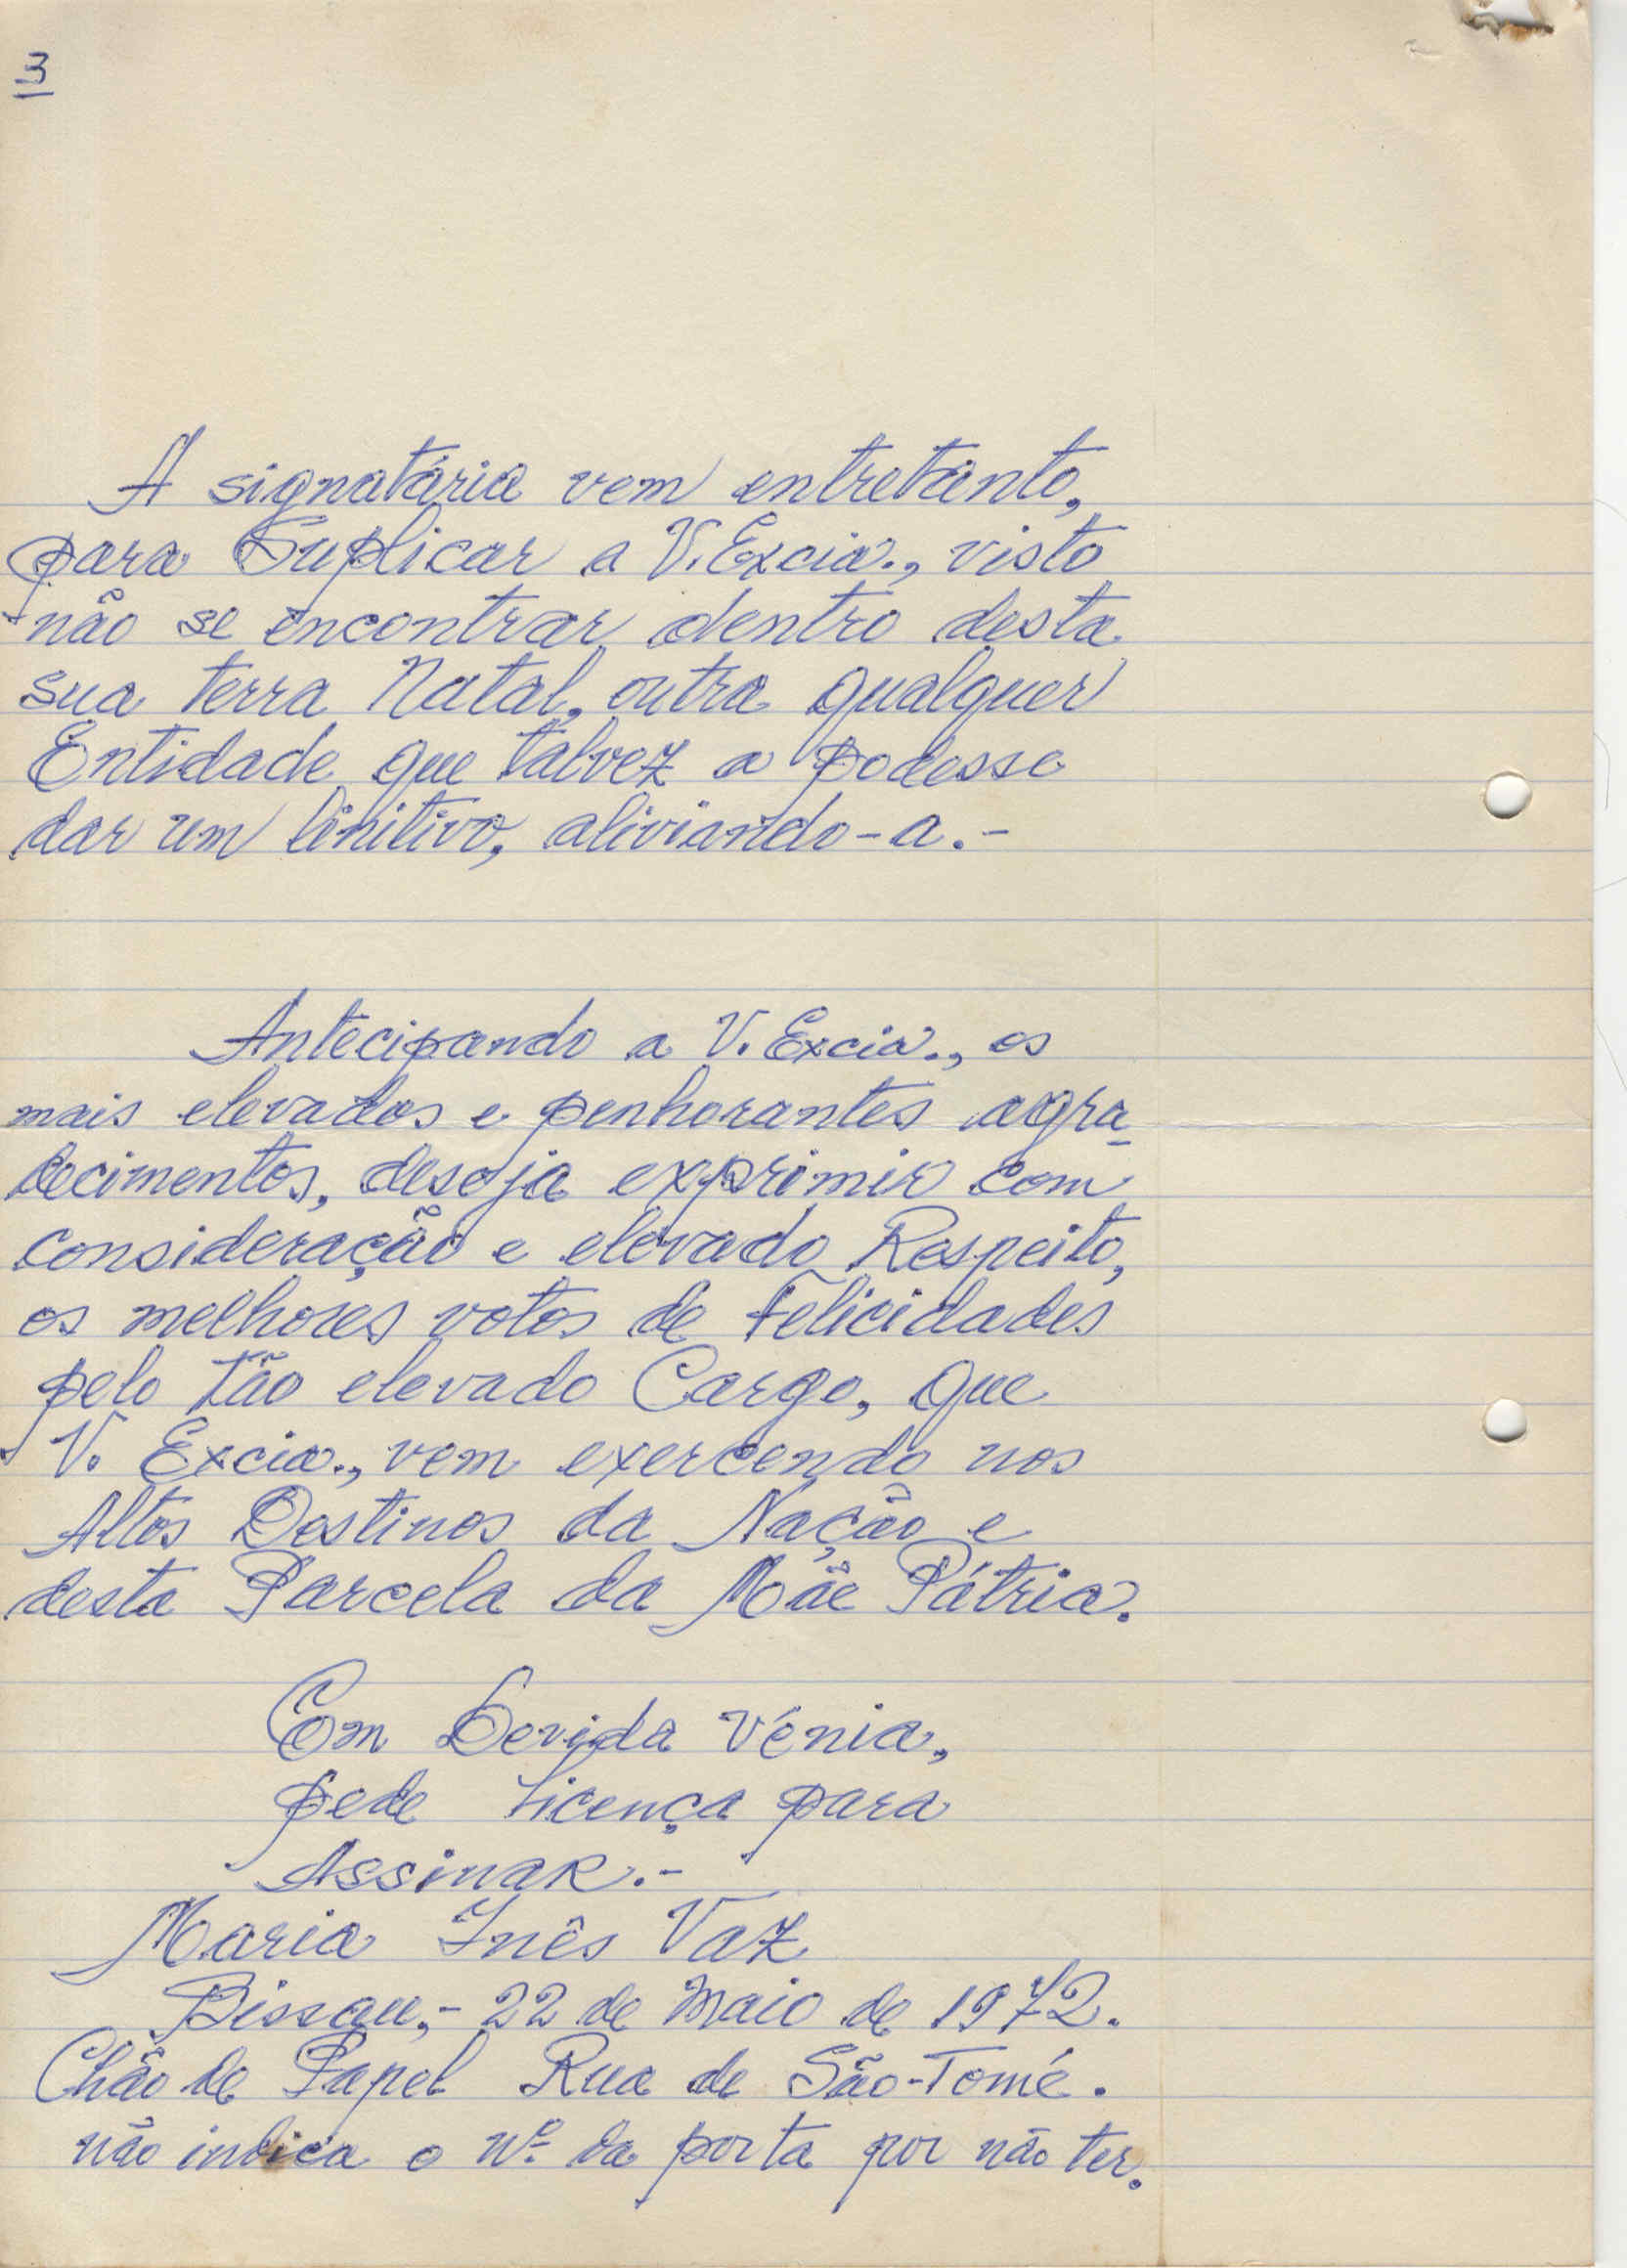 3
A signatária vem entretanto,
para Suplicar a V. Excia., visto
não se encontrar dentro desta
sua terra Natal, outra qualquer
Entidade que talvez a podesse
dar um linitivo, aliviando-a.-
Antecipando a V. Excia., os
mais elevados e penhorantes agra-
decimentos, deseja exprimir com
consideração e elevado Respeito,
os melhores votos de Felicidades
pelo tão elevado Cargo, que
V. Excia., vem exercendo nos
Altos Destinos da Nação e
desta Parcela da Mãe Pátria.
Com Devida Vénia,
pede licença para
Assinar.-
Maria Inês Vaz
Bissau,- 22 de Maio de 1972.
Chão de Papel Rua de São-Tomé.
não indica o nº da porta por não ter.